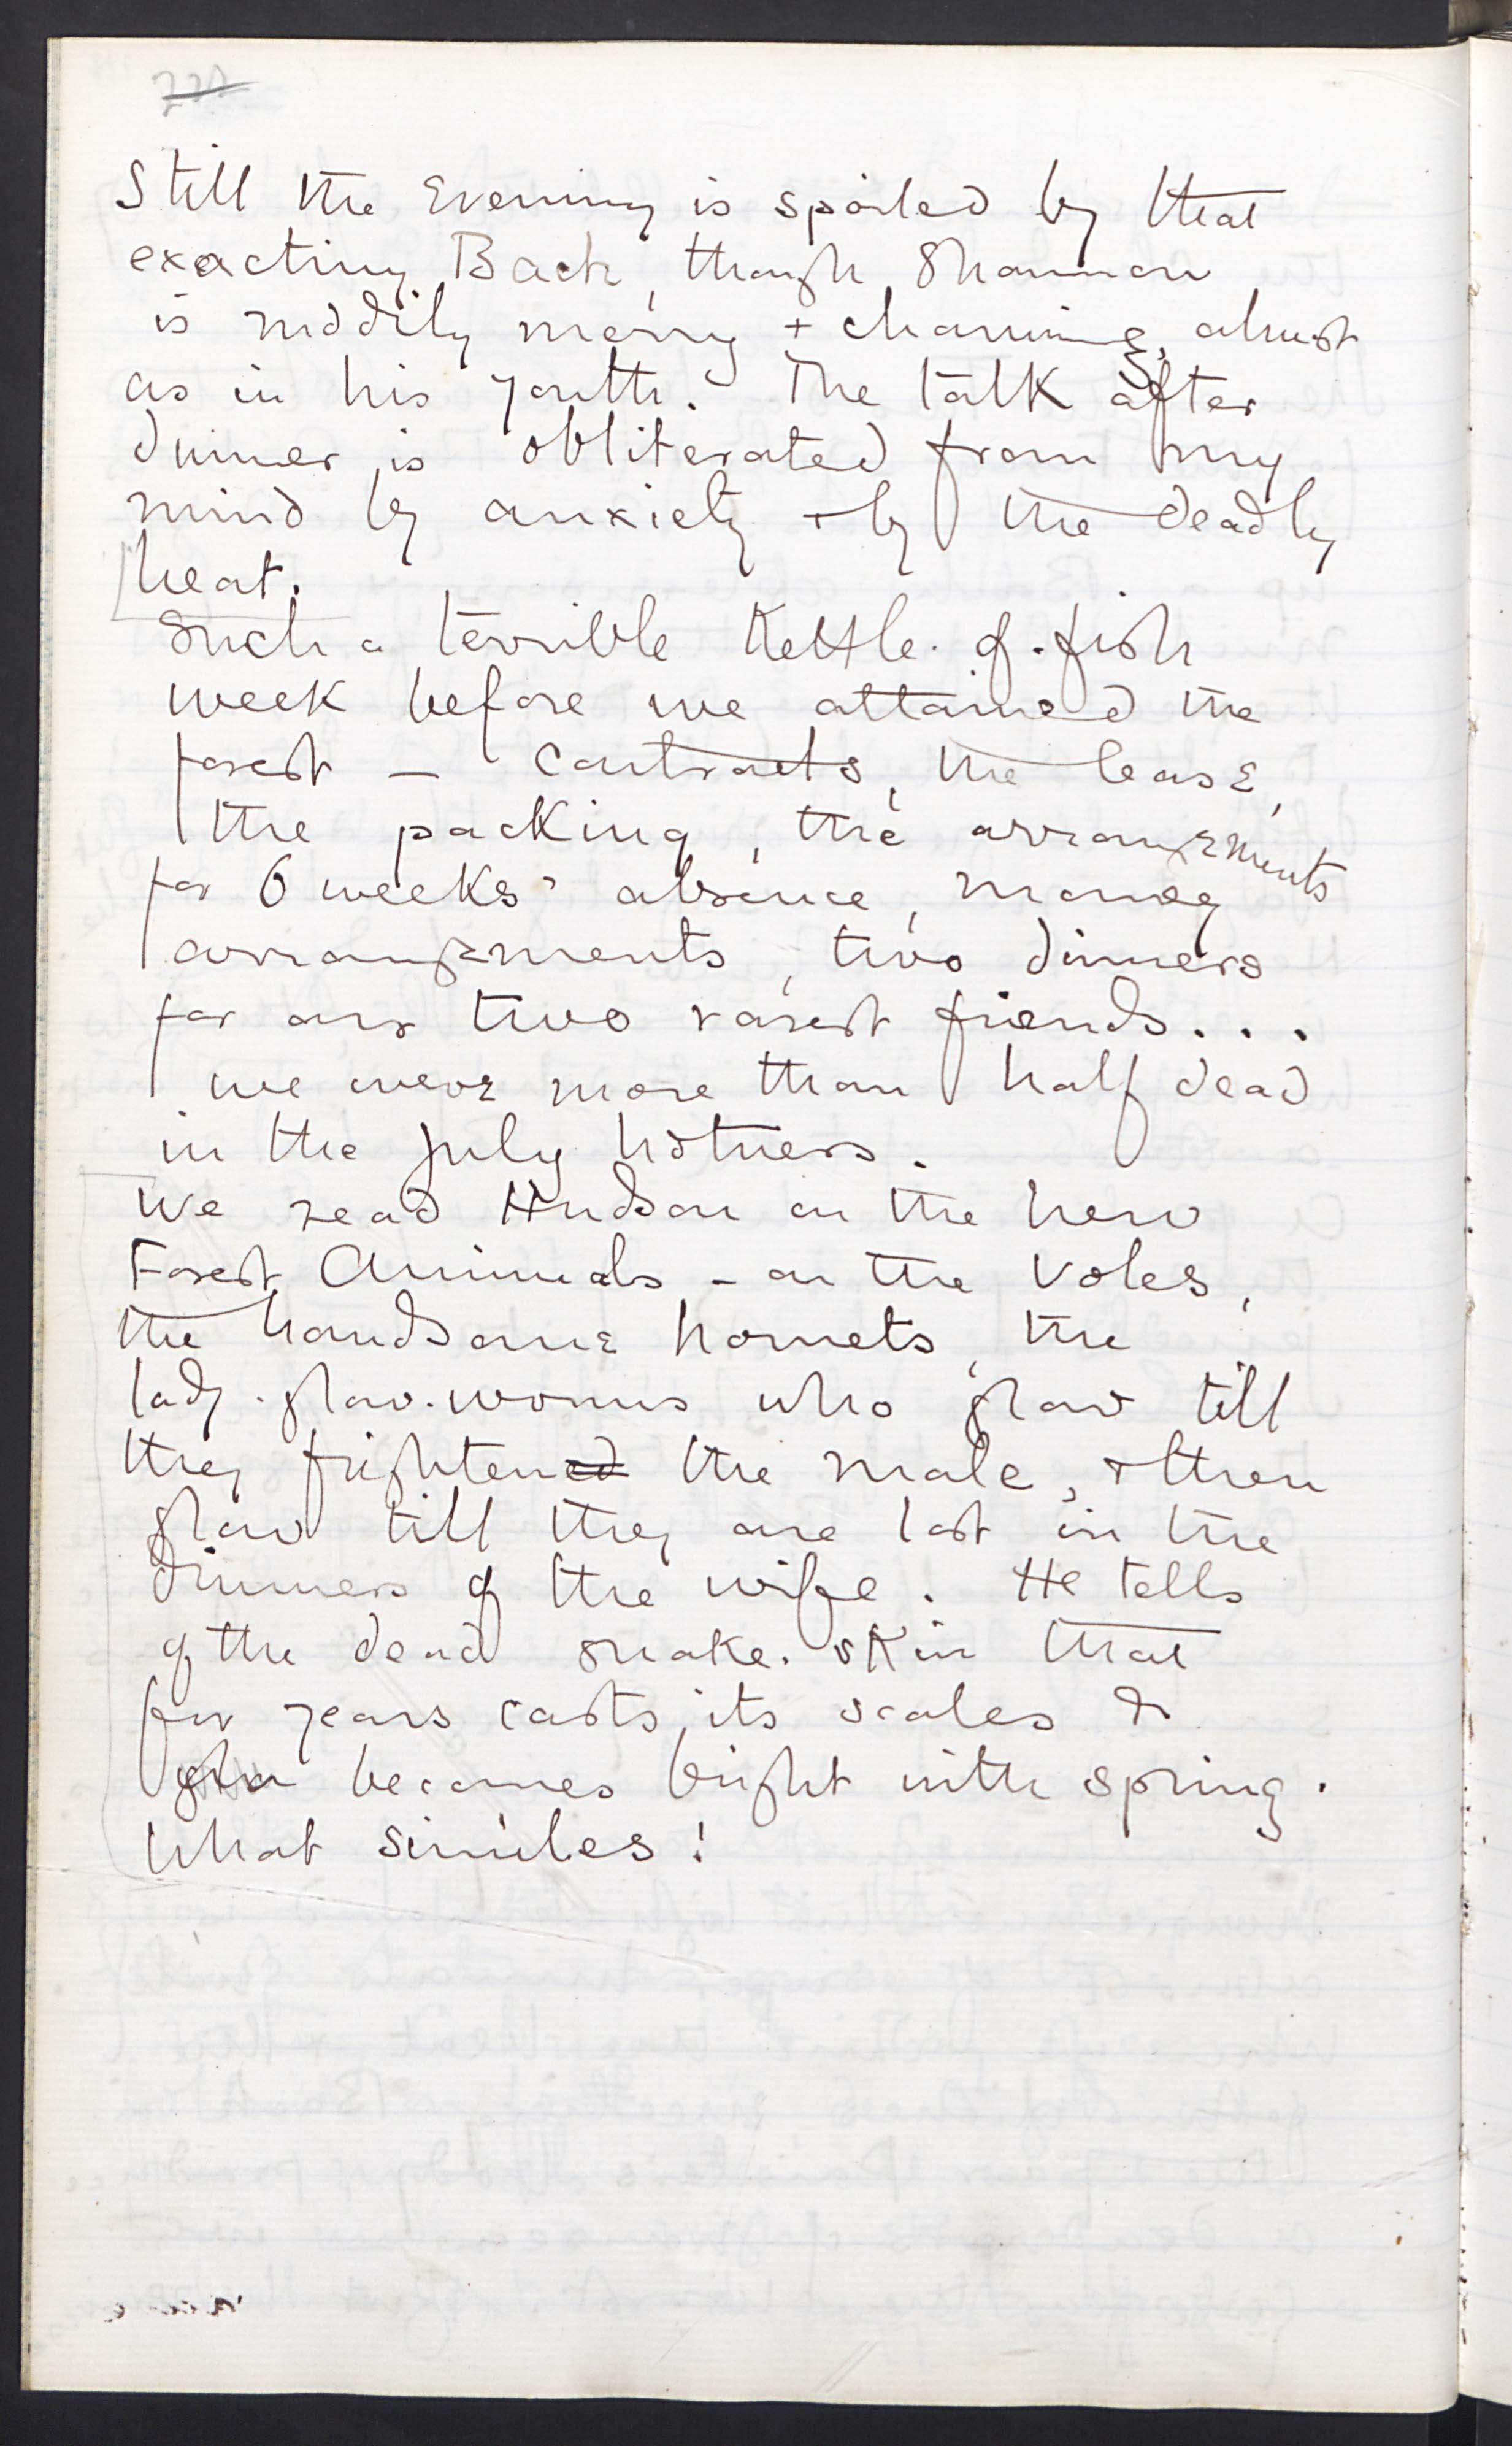 Still the Evening is spoiled by that
exacting Back, though Shannon
is ruddily merry + charming, almost
as in his youth. The talk after
dinner is obliterated from my
mind by anxiety + by the deadly
heat.
Such a terrible Kettle-of-fish
week before we attained the
forest — Contracts, the lease,
the packing, the arrangements
for 6 weeks' absence, money
arrangements, two dinners
for our two rarest friends...
we were more than half dead
in the July hotness.
We read Hudson on the New
Forest Animals - on the Voles,
the handsome hornets, the
lady-glow-worms who glow till
they frighten the male, & then
glow till they are lost in the
dimness of the wife. He tells
of the dead snake-skin that
for years casts its scales &
becomes bright with spring.
What similes!